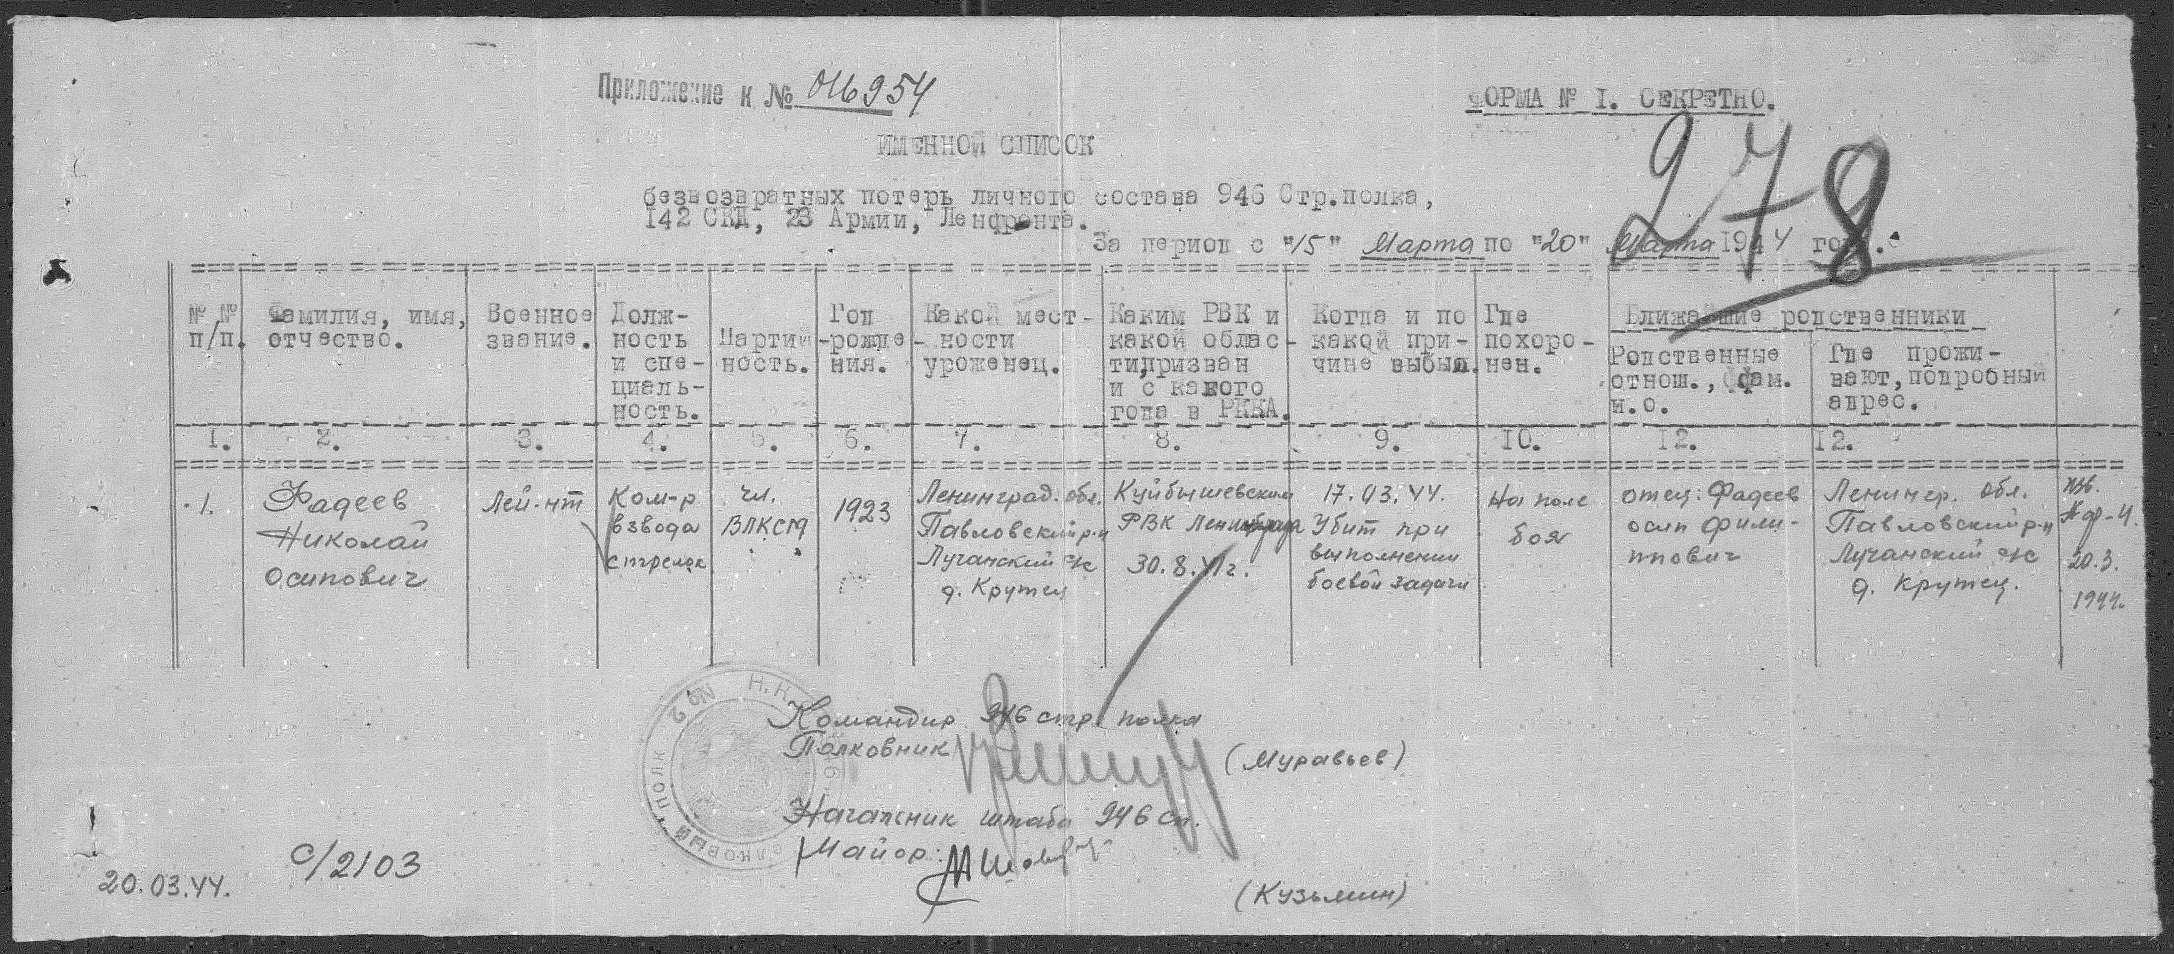 Приложение к № 016954
ФОРМА № I. СЕКРЕТНО.
278
ИМЕННОЙ СПИСОК
безвозвратных потерь личного состава 946 Стр.полка,
142 СКД, 23 Армии, Ленфронта.
За период с "15" Марта по "20" Марта 1944 года.
№ №
п/п.
Фамилия, имя,
отчество.
Военное
звание.
Долж-
ность
и спе-
циаль-
ность.
Партий-
ность.
Год
рожде-
ния.
Какой мест-
ности
уроженец.
Каким РВК и
какой облас-
ти,призван
и с какого
года в РККА.
Когда и по
какой при-
чине выбыл.
Где
похоро-
нен.
Ближайшие родственники
Родственные
отнош., фам.
и.о.
Где прожи-
вают,подробный
адрес.
1. 2. 3. 4. 5. 6. 7. 8. 9. 10. 12. 12.
1.
Фадеев
Николай
Осипович
Лей-нт
Ком-р
взвода
стрелок
чл.
ВЛКСМ
1923
Ленинград. обл.
Павловский р-н
Лучанский с/с
д. Крутец
Куйбышевским
РВК Ленинграда
30.8.41г.
17.03.44.
Убит при
выполнении
боевой задачи
На поле
боя
отец: Фадеев
осип фили-
ппович
Ленингр. обл.
Павловский р-н
Лучанский с/с
д. Крутец.
20.3.
1944.
Командир 946 стр. полка
Полковник
(Муравьев)
Начальник штаба 946 сп.
Майор:
(Кузьмин)
20.03.44.
с/2103